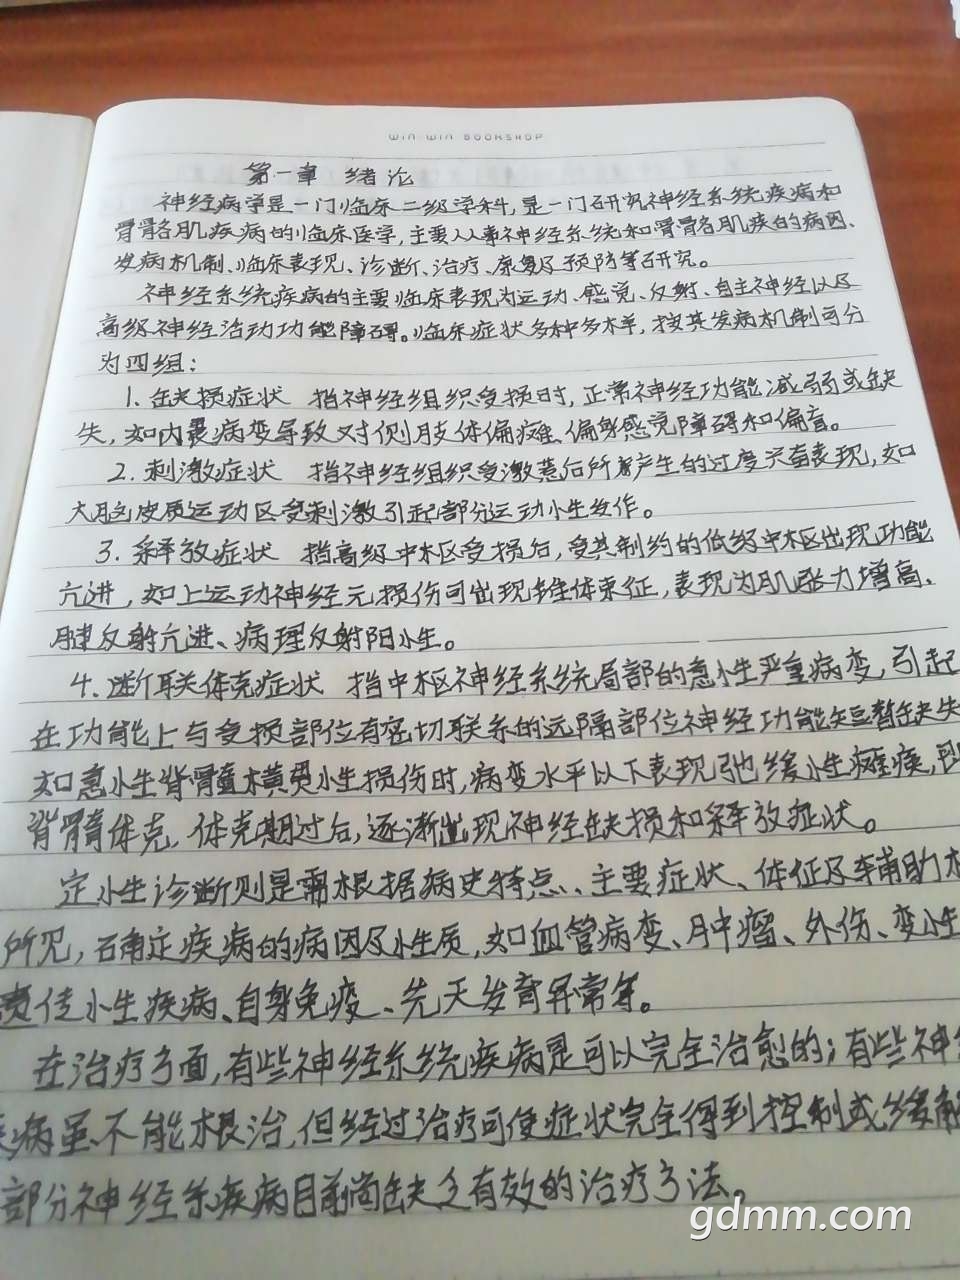 WIN WIN BOOKSHOP
第一章 绪论
神经病学是一门临床二级学科,是一门研究神经系统疾病和
骨骼肌疾病的临床医学,主要从事神经系统和骨骼肌疾的病因、
发病机制、临床表现、诊断、治疗、康复及预防等研究。
神经系统疾病的主要临床表现为运动、感觉、反射、自主神经以及
高级神经活动功能障碍。临床症状多种多样,按其发病机制可分
为四组:
1. 缺损症状 指神经组织受损时,正常神经功能减弱或缺
失,如内囊病变导致对侧肢体偏瘫、偏身感觉障碍和偏盲。
2. 刺激症状 指神经组织受激惹后所产生的过度兴奋表现,如
大脑皮质运动区受刺激引起部分运动性发作。
3. 释放症状 指高级中枢受损后,受其制约的低级中枢出现功能
亢进,如上运动神经元损伤可出现锥体束征,表现为肌张力增高、
腱反射亢进、病理反射阳性。
4. 断联休克症状 指中枢神经系统局部的急性严重病变,引起
在功能上与受损部位有密切联系的远隔部位神经功能短暂缺失
如急性脊髓横贯性损伤时,病变水平以下表现弛缓性瘫痪,即
脊髓休克,休克期过后,逐渐出现神经缺损和释放症状。
定性诊断则是需根据病史特点、主要症状、体征及辅助
所见,确定疾病的病因及性质,如血管病变、肿瘤、外伤、变性
遗传性疾病、自身免疫、先天发育异常等。
在治疗方面,有些神经系统疾病是可以完全治愈的;有些神
病虽不能根治,但经过治疗可使症状完全得到控制或缓解
部分神经系疾病目前尚缺乏有效的治疗方法。
gdmm.com